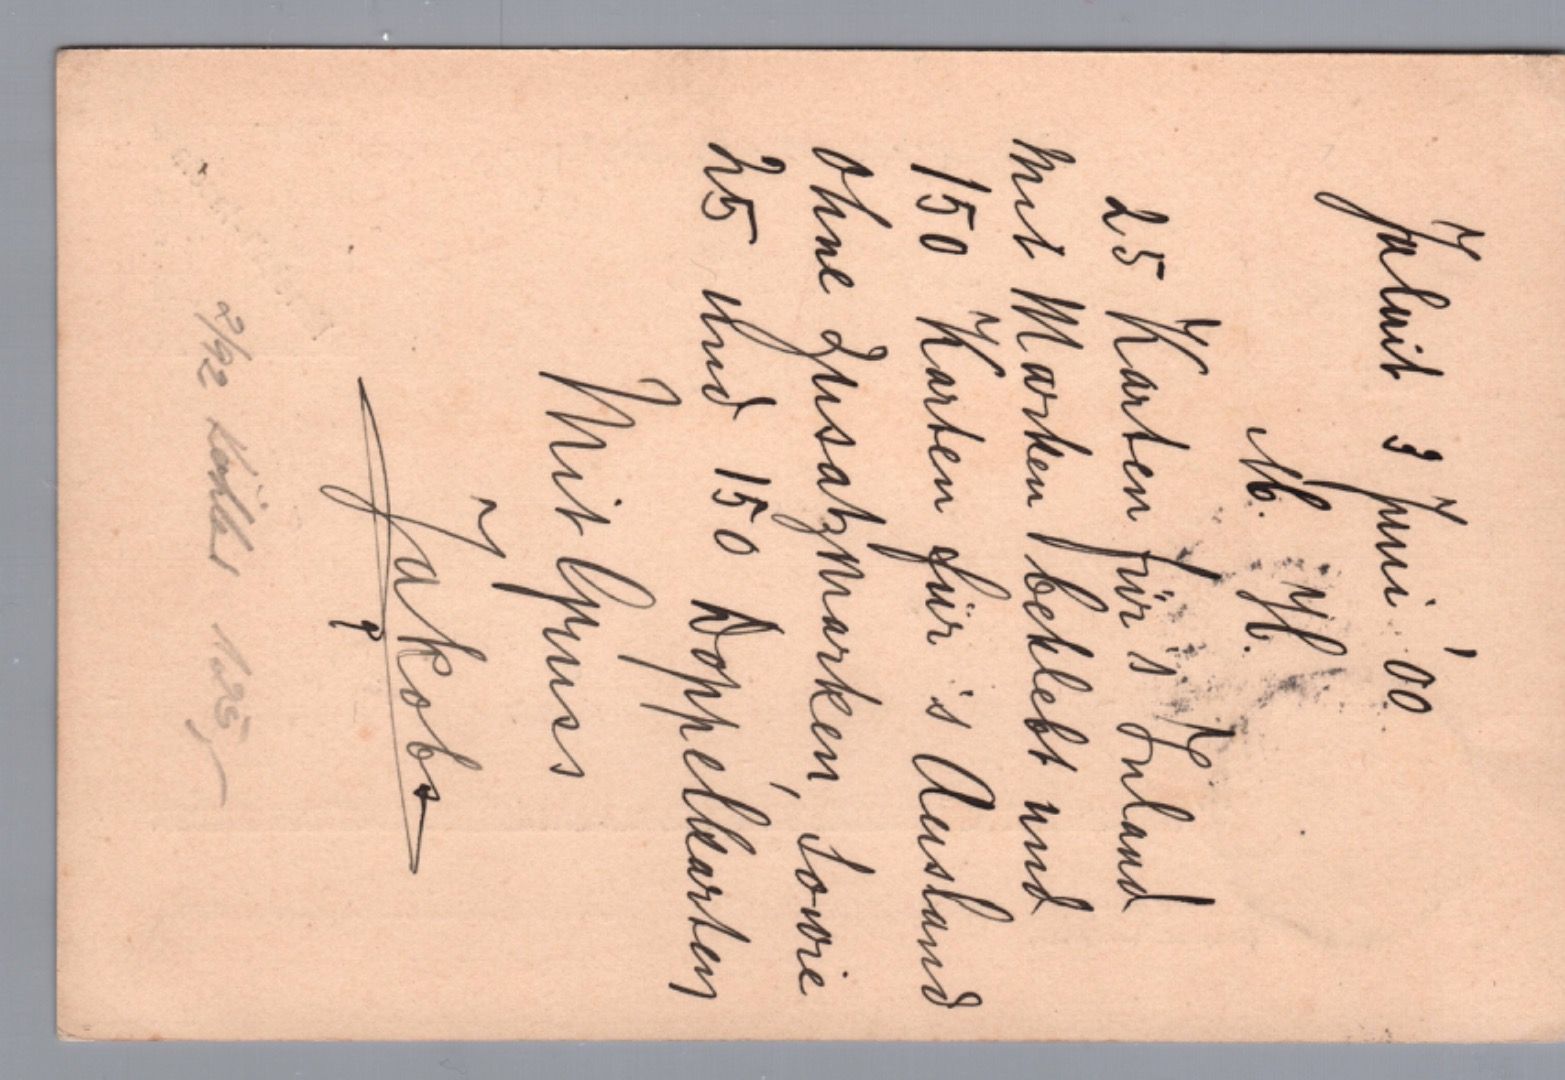 Jaluit 3 Juni '00
M. H.
25 Karten für's Inland
mit Marken beklebt und
150 Karten für's Ausland
ohne Zusatzmarken, sowie
25 und 150 Doppelkarten
Mit Gruss
Jakobs
2/92 Köhler 125,-